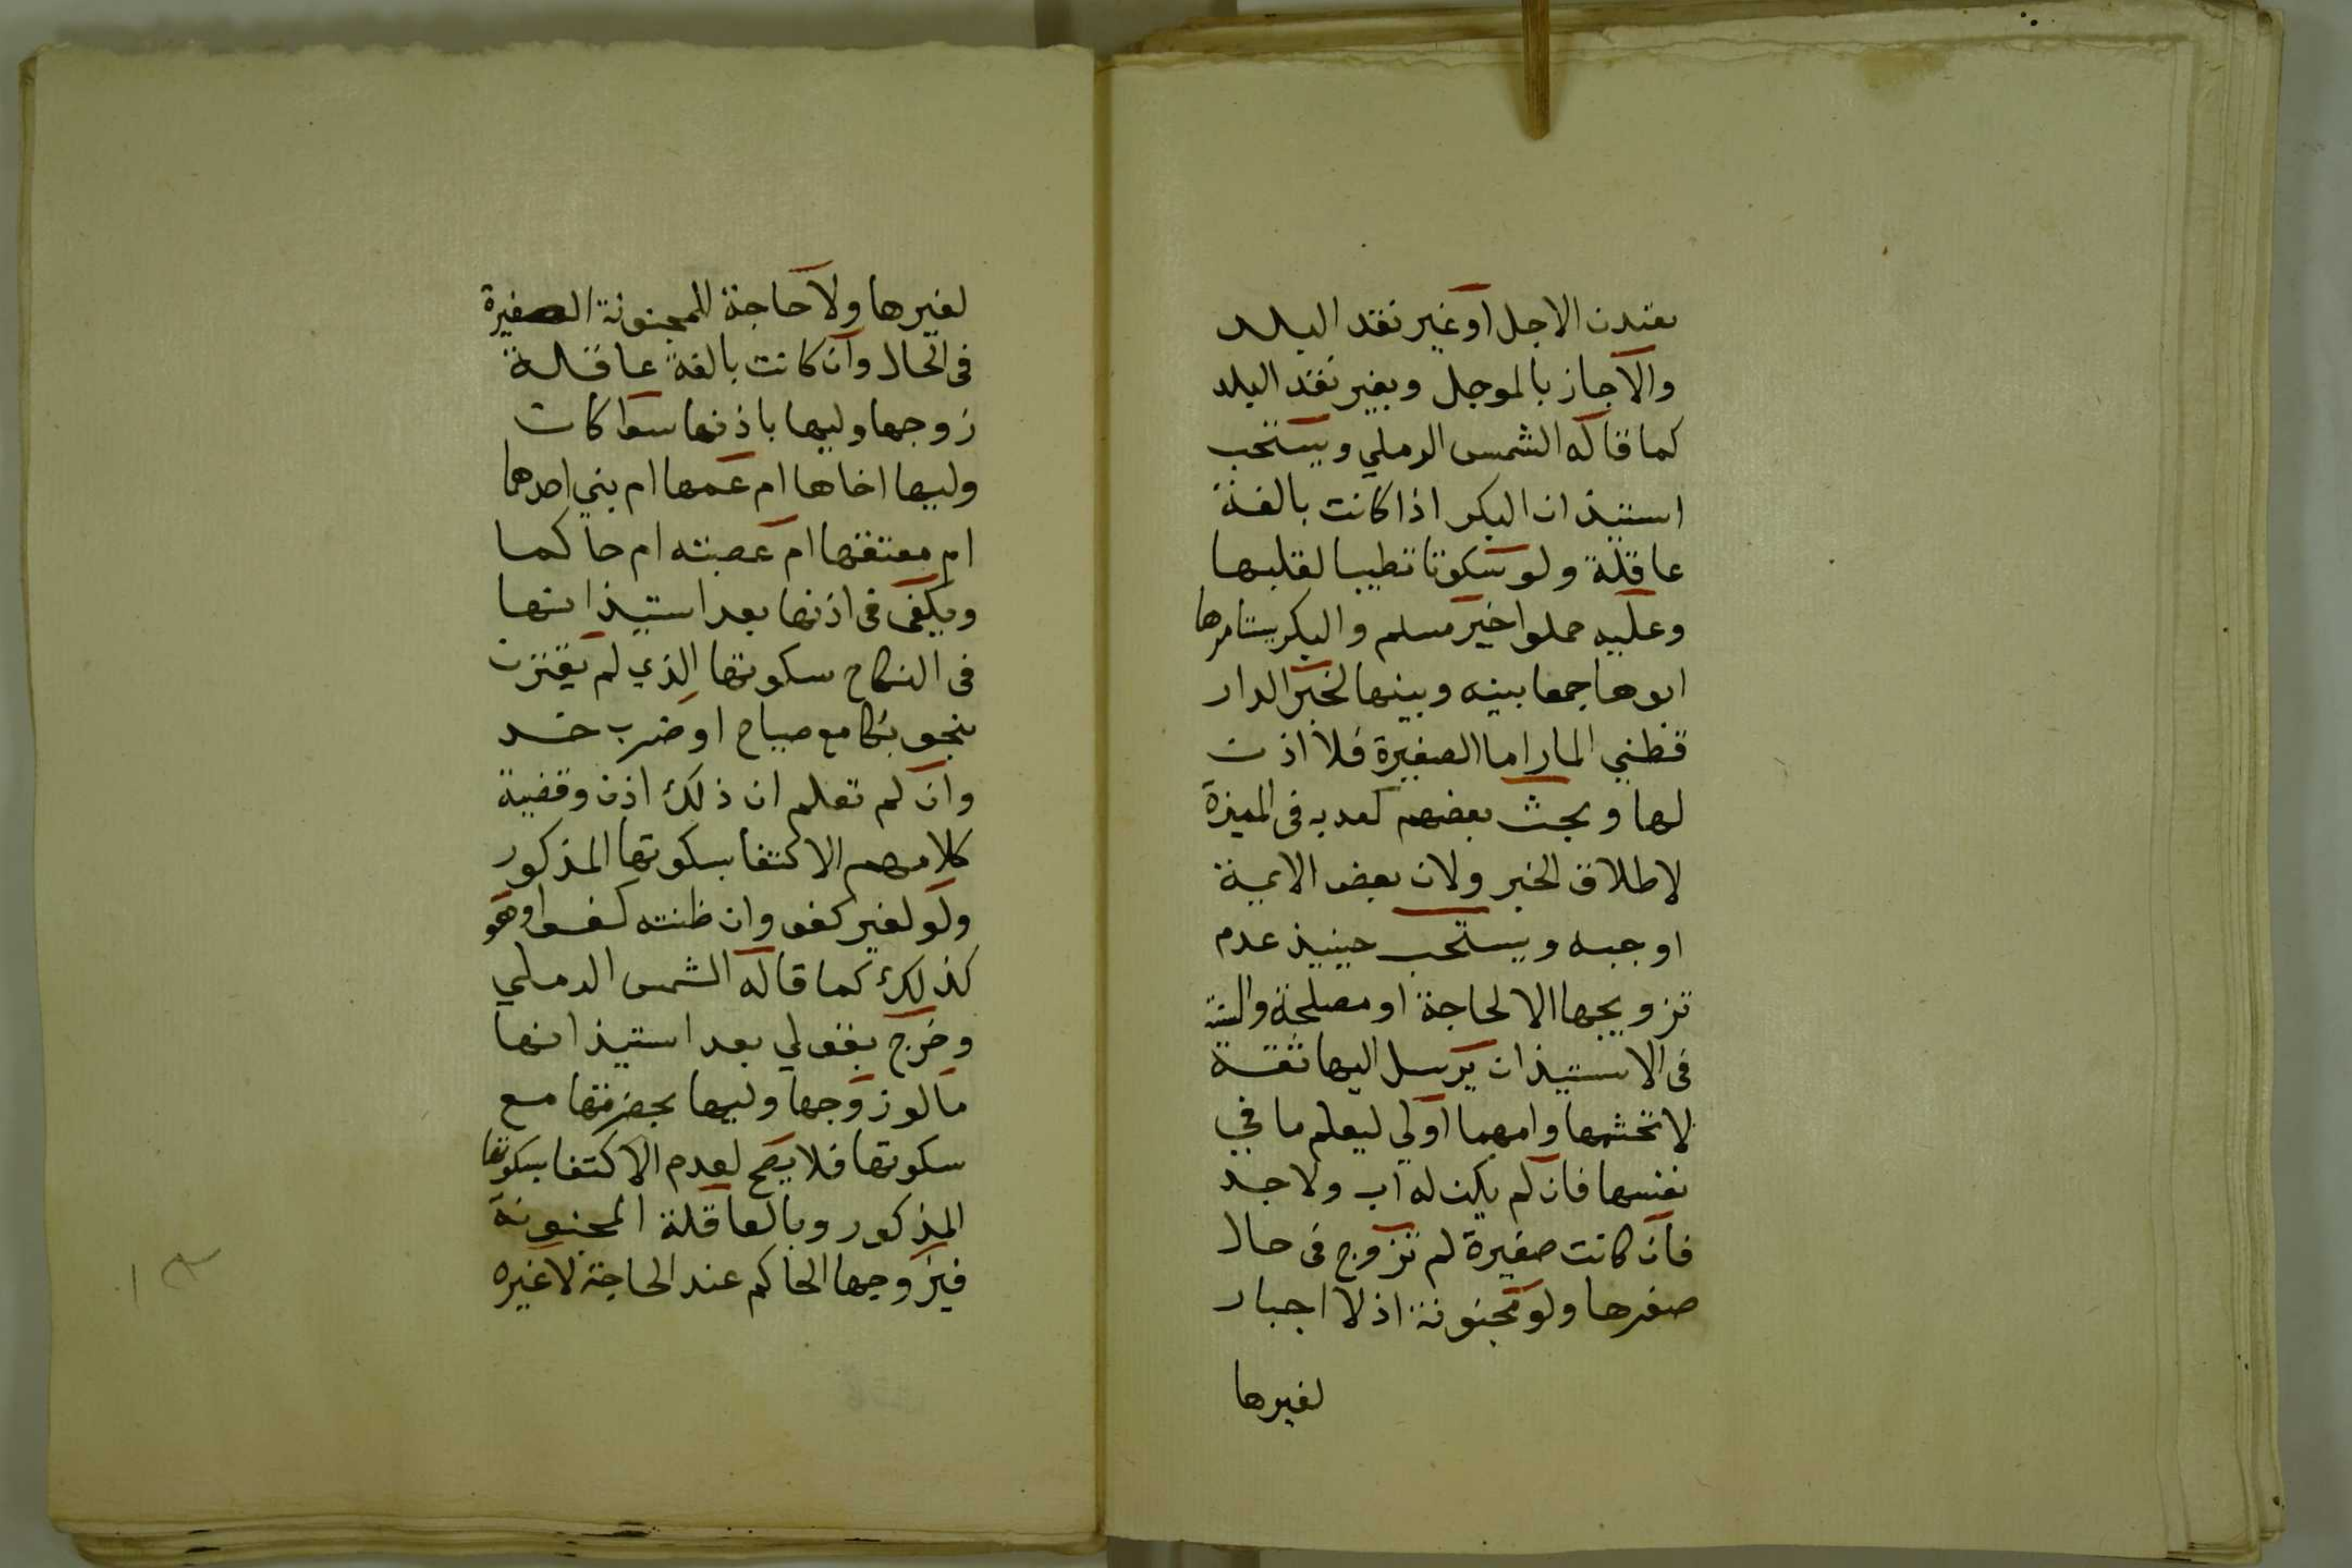 يعتدن الاجل او غير نقد البلد
والا جاز بالموجل وبغير نقد البلد
كما قاله الشمس الرملي ويستحب
استيذان البكر اذا كانت بالغة
عاقلة ولو سكوتا تطيبا لقلبها
وعليه حملوا خبر مسلم والبكر يستامرها
ابوها جمعا بينه وبينها لخبر الدار
قطني المار اما الصغيرة فلا اذن
لها وبحث بعضهم ندبه في المميزة
لاطلاق الخبر ولان بعض الايمة
اوجبه ويستحب حينيذ عدم
تزويجها الا لحاجة او مصلحة والسنة
في الاستيذان يرسل اليها ثقة
لا تحتشمها وامهما اولي ليعلم ما في
نفسها فان لم يكن له اب ولا جد
فان كانت صغيرة لم تزوج في حال
صغرها ولو مجنونة اذ لا اجبار
لغيرها
لغيرها ولا حاجة للمجنونة الصغيرة
في الحال وان كانت بالغة عاقلة
زوجها وليها باذنها سوا كان
وليها اخاها ام عمها ام بني احدهما
ام معتقها ام عصبته ام حاكما
ويكفي في اذنها بعد استيذانها
في النكاح سكوتها الذي لم يقترن
بنحو بكا مع صياح او ضرب خد
وان لم تعلم ان ذلك اذن وقضية
كلامهم الاكتفا بسكوتها المذكور
ولو لغير كفو وان ظنته كفوا وهو
كذلك كما قاله الشمس الرملي
وخرج بقولي بعد استيذانها
ما لو زوجها وليها بحضرتها مع
سكوتها فلا يصح لعدم الاكتفا بسكوتها
المذكور وبالعاقلة المجنونة
فيزوجها الحاكم عند الحاجة لا غيره